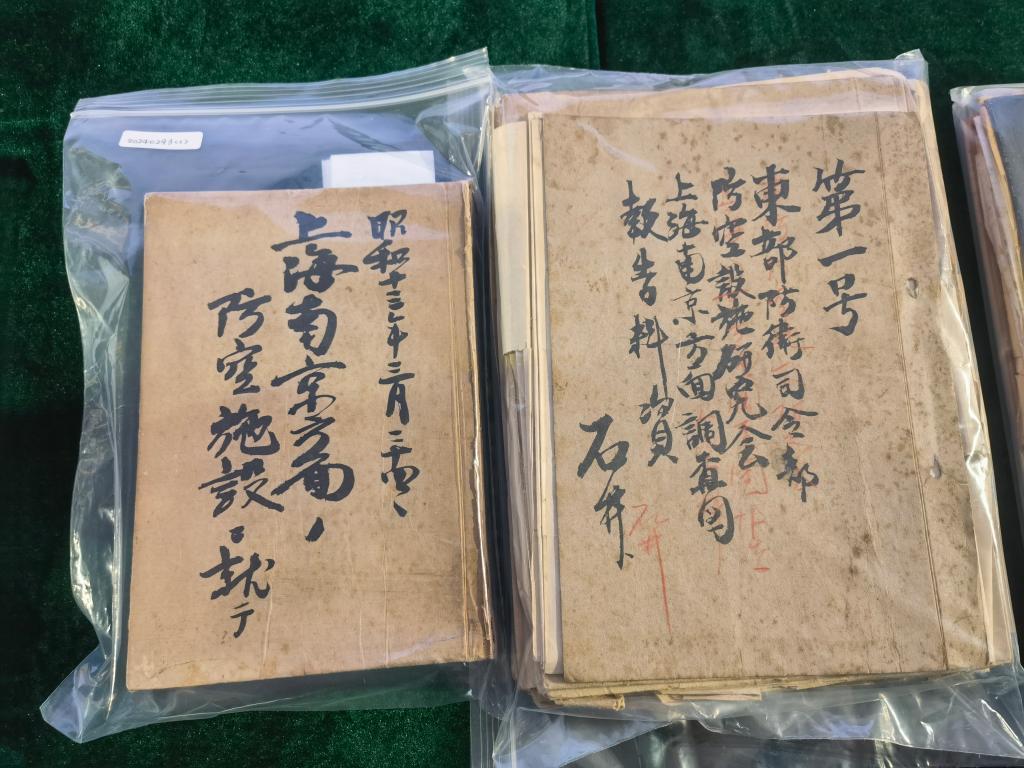 昭和十三年三月二十四、
上海南京方面ノ
防空施設ニ就テ
第一号
東部防衛司令部
防空設施研究会
上海南京方面調査図
報告料
石井
石井